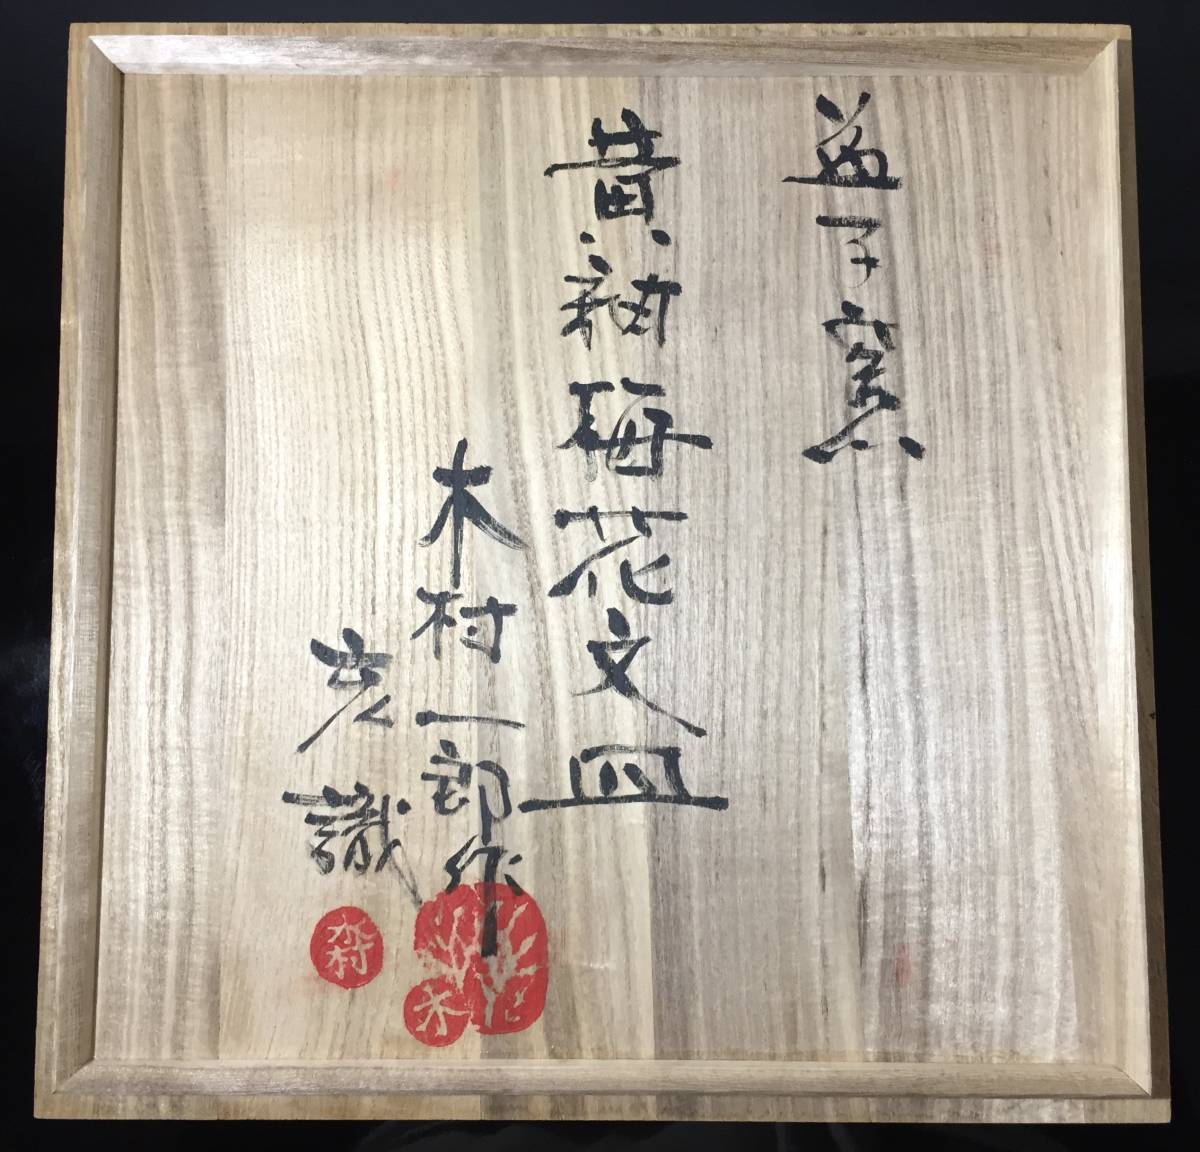 益子窯
黄釉梅花文皿
木村一郎作
識
木村
木